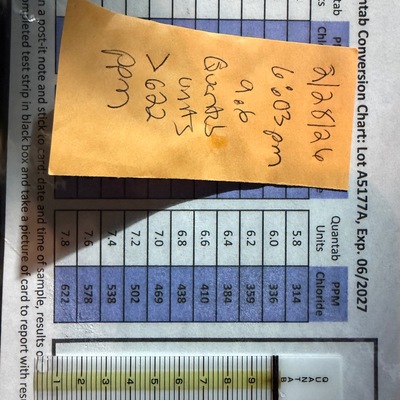 ntab Conversion Chart: Lot A5177A, Exp. 06/2027
2/28/26
6:03 pm
9.6
Quantab
units
>622
ppm
Quantab Units PPM Chloride
5.8 314
6.0 336
6.2 359
6.4 384
6.6 410
6.8 438
7.0 469
7.2 502
7.4 538
7.6 578
7.8 622
n a post-it note and stick to card. date and time of sample, results o
ompleted test strip in black box and take a picture of card to report with res
QUANTAB
9
8
7
6
5
4
3
2
1